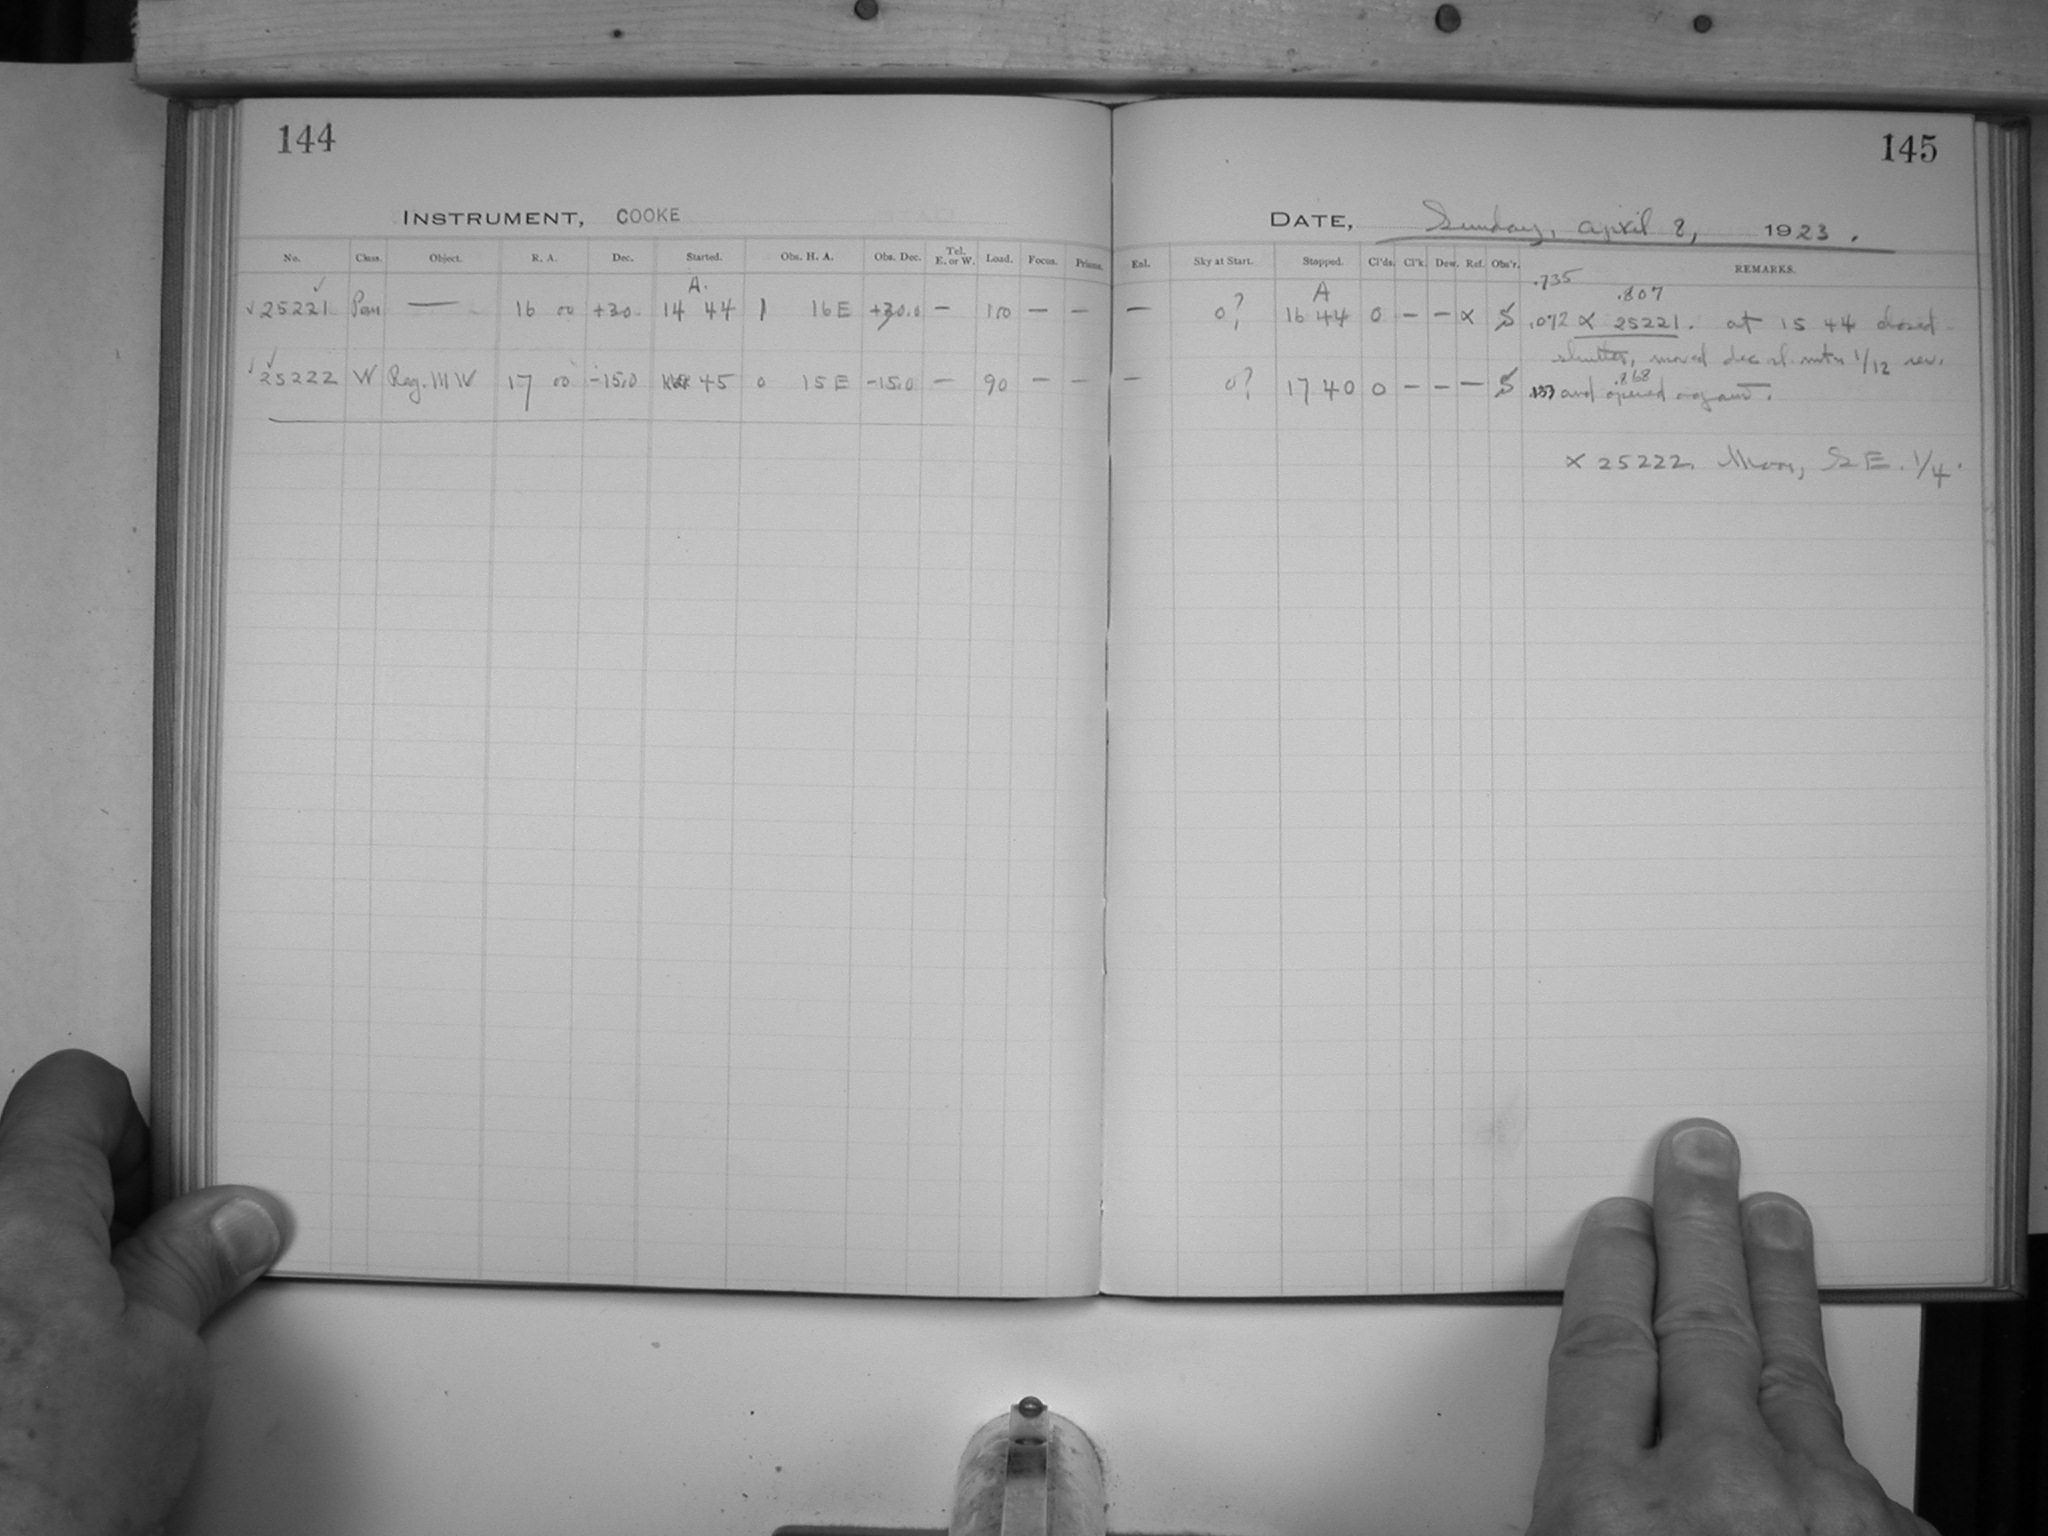 144
145
INSTRUMENT, COOKE
DATE, Sunday, April 8, 1923.
No. Class. Object. R. A. Dec. Started. Obs. H. A. Obs. Dec. Tel. E. or W. Load. Focus. Prisms. Enl. Sky at Start. Stopped. Cl'ds. Cl'k. Dew. Ref. Obs'r. REMARKS.
A. A .735 .807
✓ 25221 — 16 00 +30. 14 44 1 16 E +30.0 — 100 — — — 0? 16 44 0 — — x S .072 x 25221. at 15 44 closed
shutter, moved dec. sl. mtn 1/12 rev.
✓ 25222 W Reg. III W 17 00 -15.0 45 0 15 E -15.0 — 90 — — — 0? 17 40 0 — — — S .133 and opened again. .868
x 25222. Moon, S2 E. 1/4.